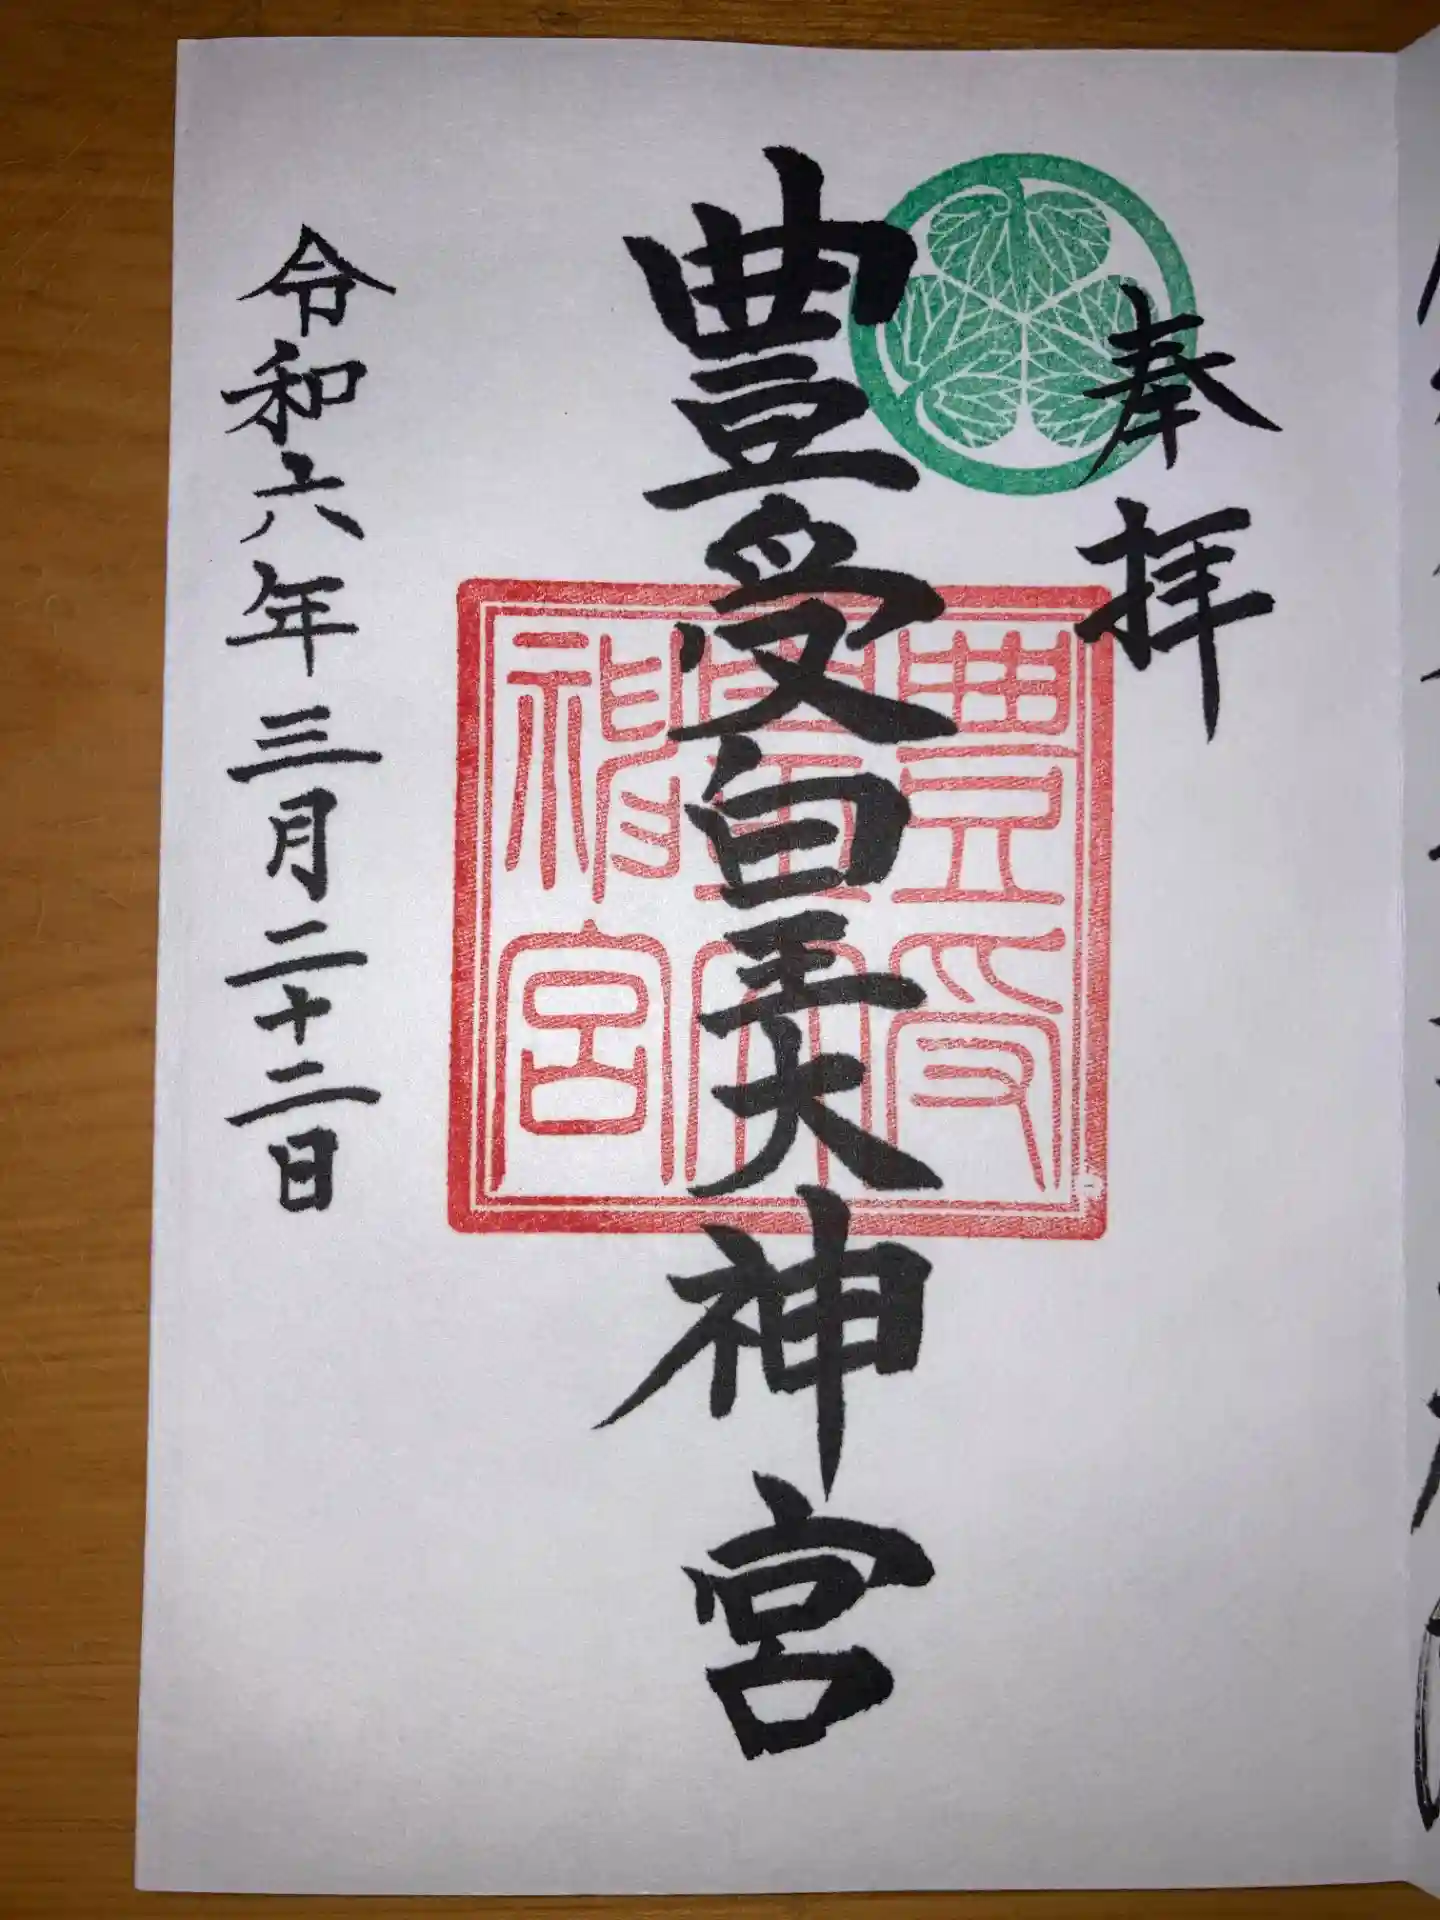 奉拝
豊受皇大神宮
豊受皇大神宮
令和六年三月二十二日